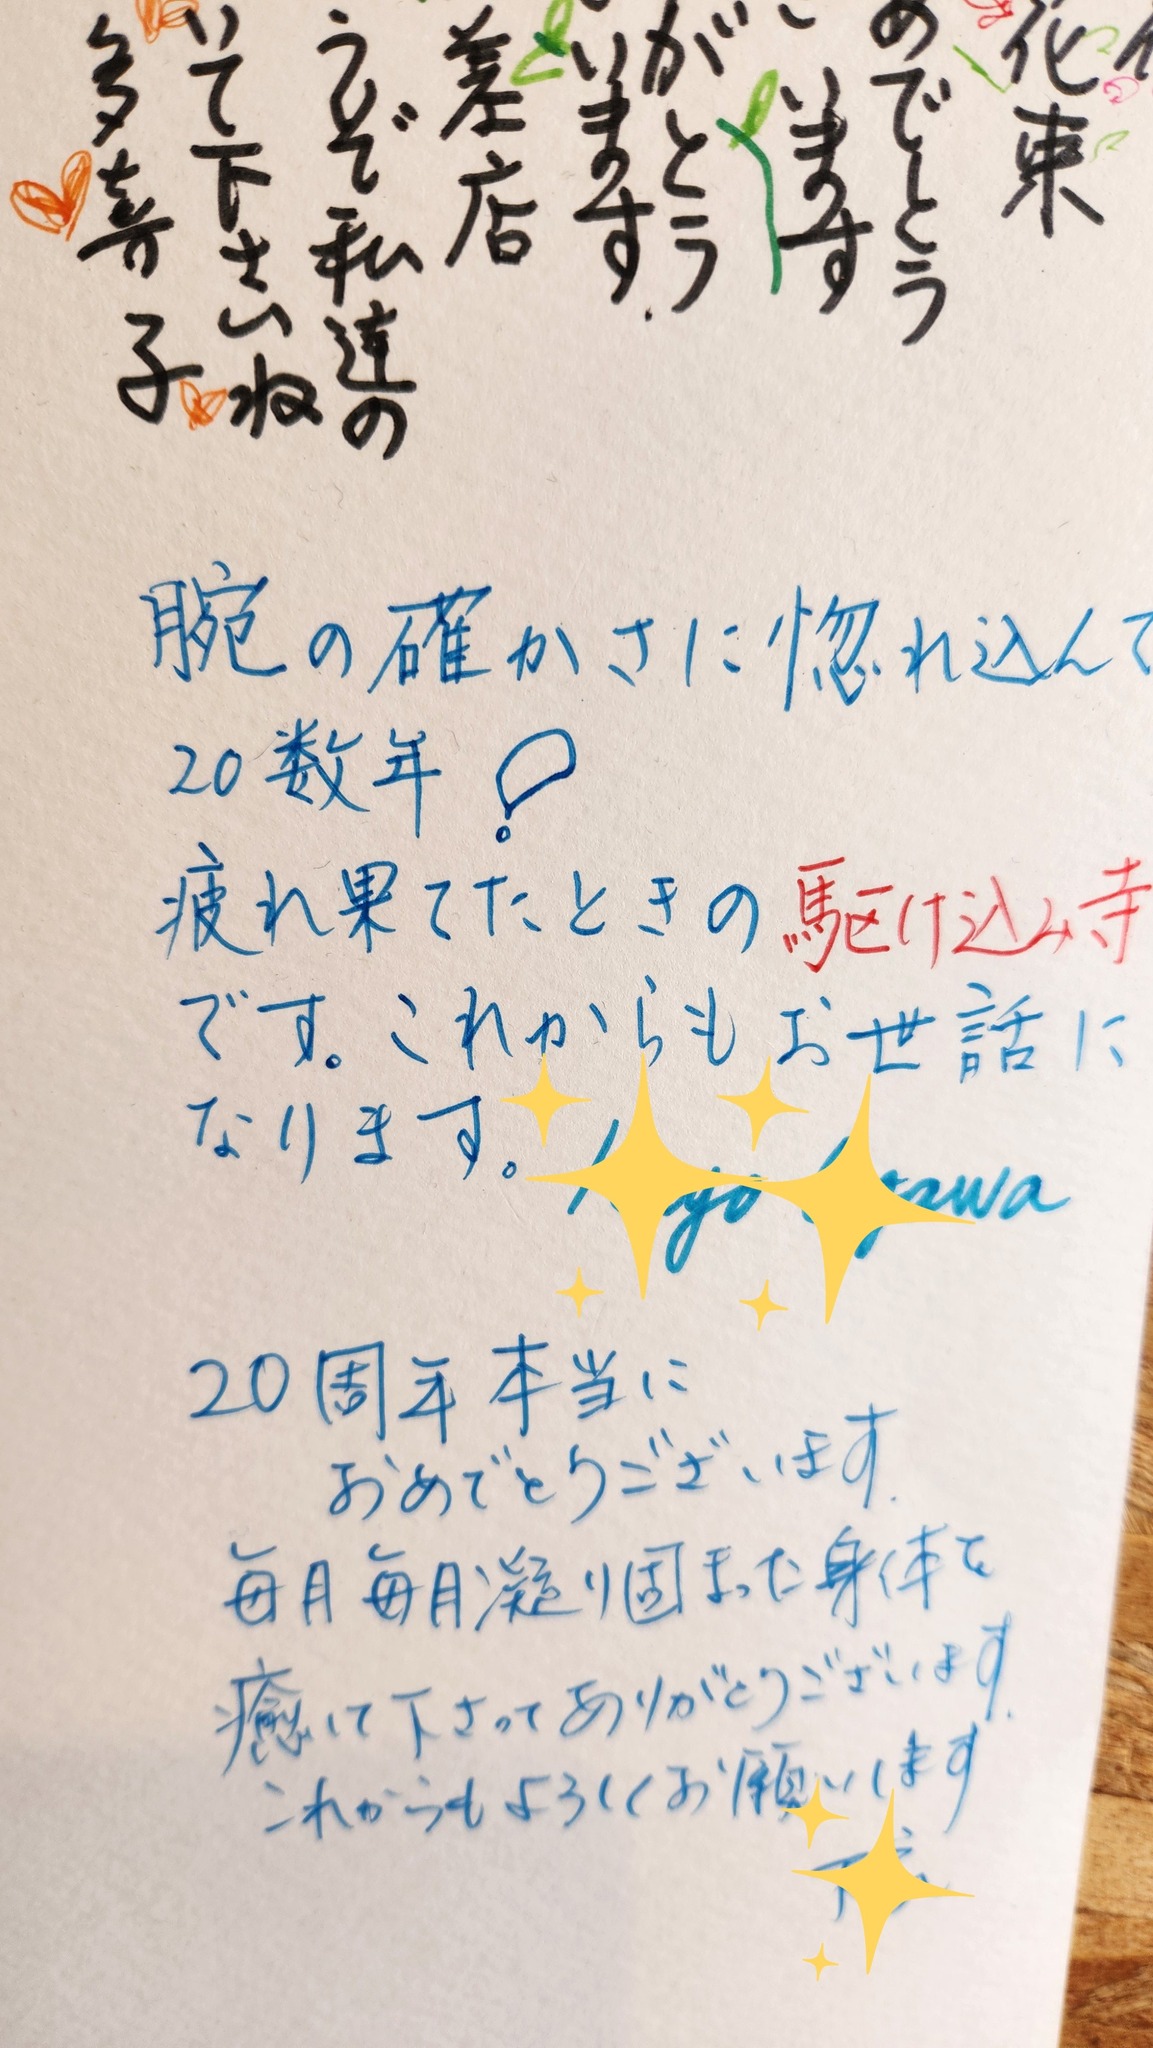 花束
めでとう
います
がとう
います
差店
うぞ私達の
いて下さいね
多喜子
腕の確かさに惚れ込んで
20数年
疲れ果てたときの駆け込み寺
です。これからもお世話に
なります。
20周年本当に
おめでとうございます
毎月毎月凝り固まった身体を
癒して下さってありがとうございます
これからもよろしくお願いします